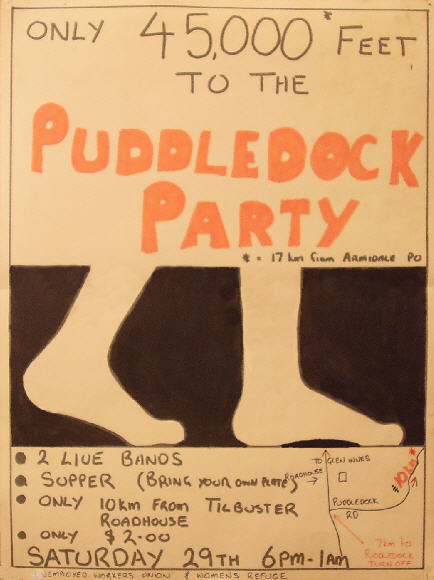 ONLY 45,000* FEET
TO THE
PUDDLEDOCK
PARTY
* = 17 km from ARMIDALE PO
• 2 LIVE BANDS
• SUPPER (BRING YOUR OWN PLATE)
• ONLY 10km FROM TILBUSTER
ROADHOUSE
• ONLY $2.00
SATURDAY 29TH 6PM-1AM
UNEMPLOYED WORKERS UNION & WOMENS REFUGE
TO GLEN INNES
ROADHOUSE →
PUDDLEDOCK
RD
10km
7km to
PUDDLEDOCK
TURN OFF